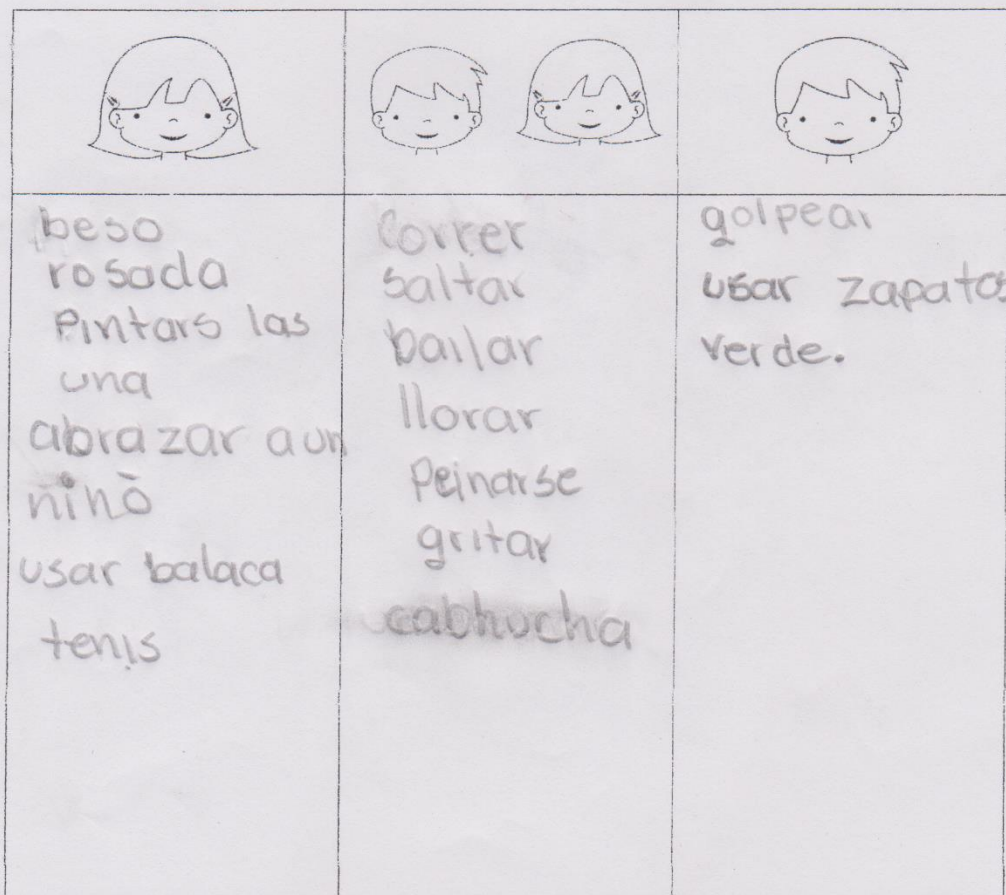 beso
rosada
Pintars las
una
abrazar a un
niño
usar balaca
tenis
Correr
saltar
bailar
llorar
Peinarse
gritar
cabhucha
golpear
usar zapatos
verde.